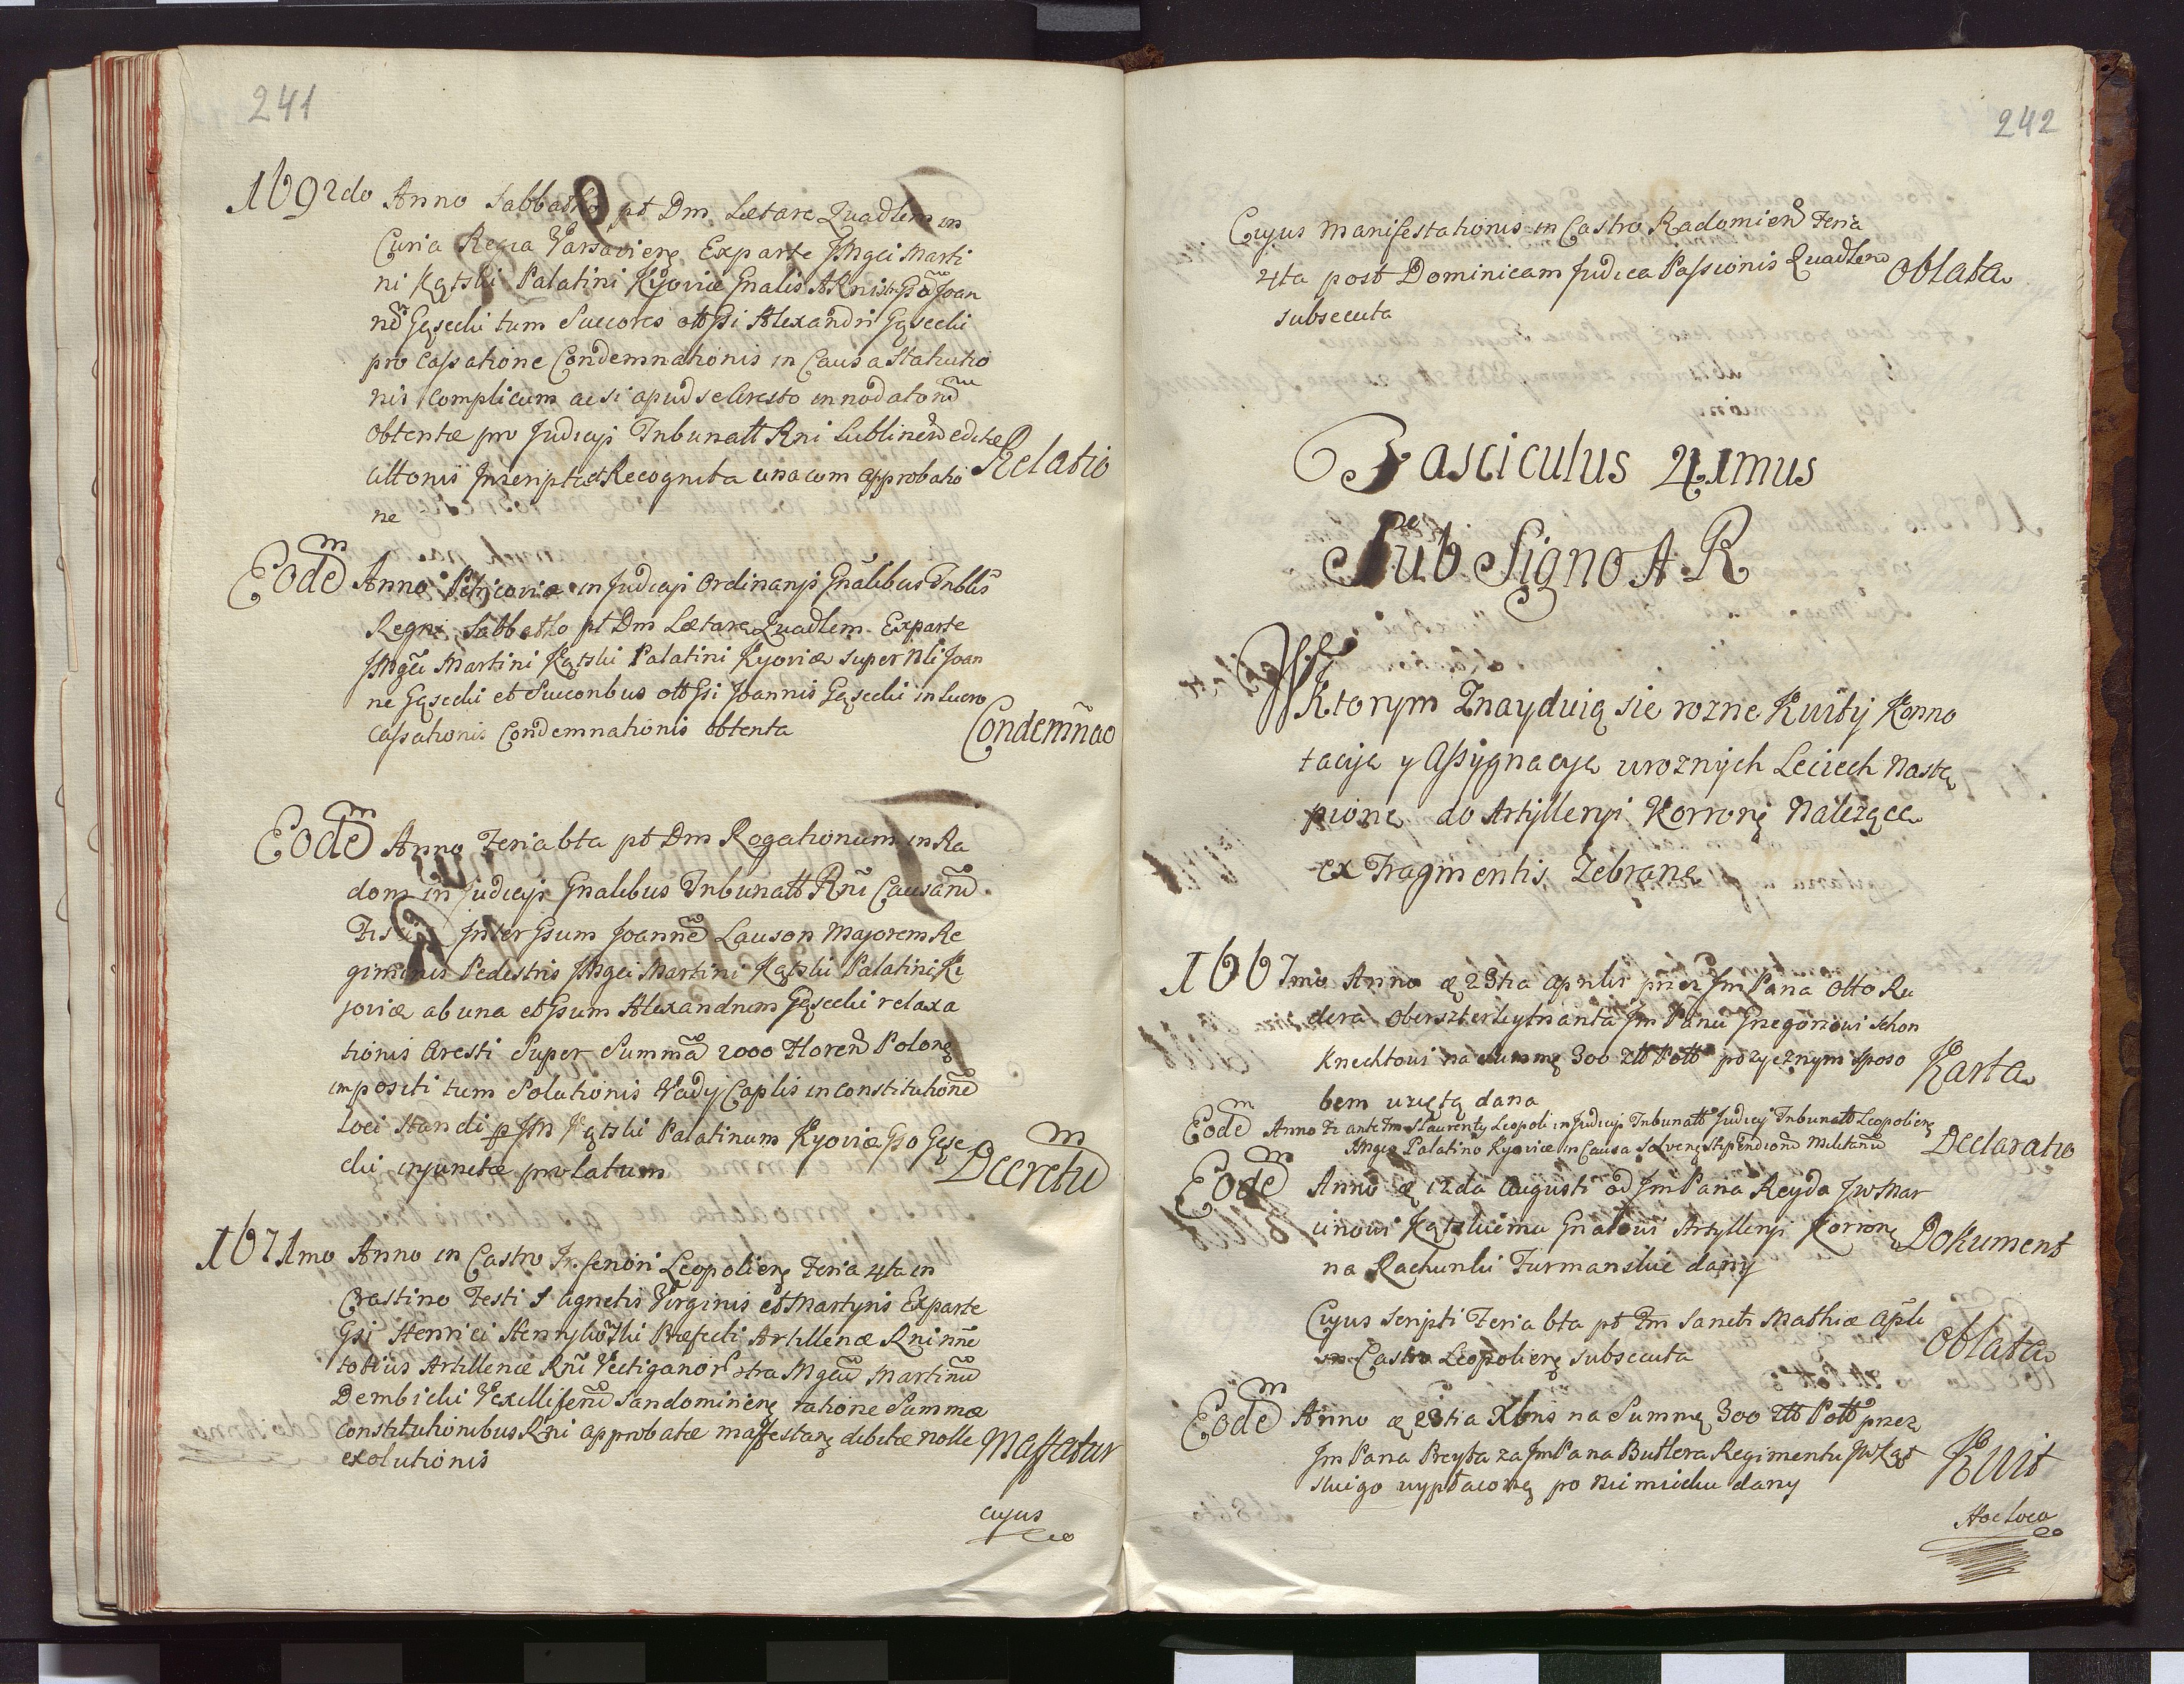 241
1692do Anno Sabbatho pt Dm Lætare Quadlem in
Curia Regia Varsaviens Exparte JMgci Marti
ni Kątski Palatini Kyoviæ Gnalis
pro Cassatione Condemnationis in Causa Statutio
nis Complicum acsi apud se Aresto innodatoru
obtentæ pro Judicijs Tribunatt Rni Lublinen
Relatio
Inscriptio Recognita una cum approbatio
ne
Eodem Anno Petricoviæ in Judicijs Ordinarijs Gñalibus Triblis
Regni Sabbatho pt Dm Lætare Quadlem Exparte
JMgci Martini Kątski Palatini Kyoviæ super Nli Joan
ne Gąsecki et Succoribus olt Gsi Joannis Gąsecki in lucro
Cassationis Condemnationis obtenta
Condemñao
Eodem Anno Feria 6ta pt Dm Rogationum in Ra
dom in Judicijs Gnalibus Tribunatt Rni Causaru
Fisci Inter Gsum Joannem Lauson Majorem Re
giminis Pedestris JMgci Martini Kątski Palatini Ki
joviæ ab una et Gsum Alexandrum Gąsecki relaxa
tionis Aresti Super Summa 2000 Floren Polons
impositi tum Solutionis Vadij Caplis in constitutione
loci Standi p JM Kątski Palatinum Kyoviæ Gso Gąse
cki injunctæ prolatum
Decretu
1671mo Anno in Castro Inferiori Leopoliens Feria 4ta in
Crastino Festi S Agnetis Virginis et Martyris Exparte
Gsi Henrici Præfecti Artilleriæ Rni nne
totius Artilleriæ Rñi ctra Mgcu Martinu
Dembicki Vexilliferu Sandomiriens ratione Summæ
Constitutionibus Rni approbatæ debitæ nolle
exolutionis
Maffatur
cujus
242
Cujus Manifestationis in Castro Radomien Feria
4ta post Dominicam Judica Passionis Quadlem
subsecuta
Oblata
Fasciculus 41mus
Sub Signo A R
W Ktorym Znayduią się rozne Kwity Konno
tacije y Assygnacye w roznych Leciech Nastą
pione do Artylleryi Korronę Nalezące
ex Fragmentis Zebrane
1667mo Anno æ 23tia Aprilis przez Jm Pana Otto Ru
dera Oberszterleytnanta Jm Panu Grzegorzowi Schon
knechtowi na Summę 300 ztt Poltt pozycznym sposo
bem wziętą dana
Karta
Eodem Anno Fr ante Fm S Laurenty Leopoli in Judicijs Tribunatt Judicij Tribunatt Leopoliens
JMgco Palatino Kyoviæ in Causa Solven Stipendioru Militariu
Declaratio
Eodem Anno æ 12da Augusti od Jm Pana Reyda JW Mar
cinowi Kątskiemu Gñałowi Artylleryi Korronę
na Rachunki Furmanskie dany
Dokument
Cujus Scripti Feria 6ta pt Fm Sancti Mathiæ Apli
in Castro Leopoliens subsecuta
Oblata
Eodem Anno æ 23tia Xbris na Summę 300 ztt Poltt przez
Jm Pana Preyta za Jm Pana Butlera Regimentu JW Kąt
skiego wypłaconę po niemiecku dany
Kwit
Hoc loco